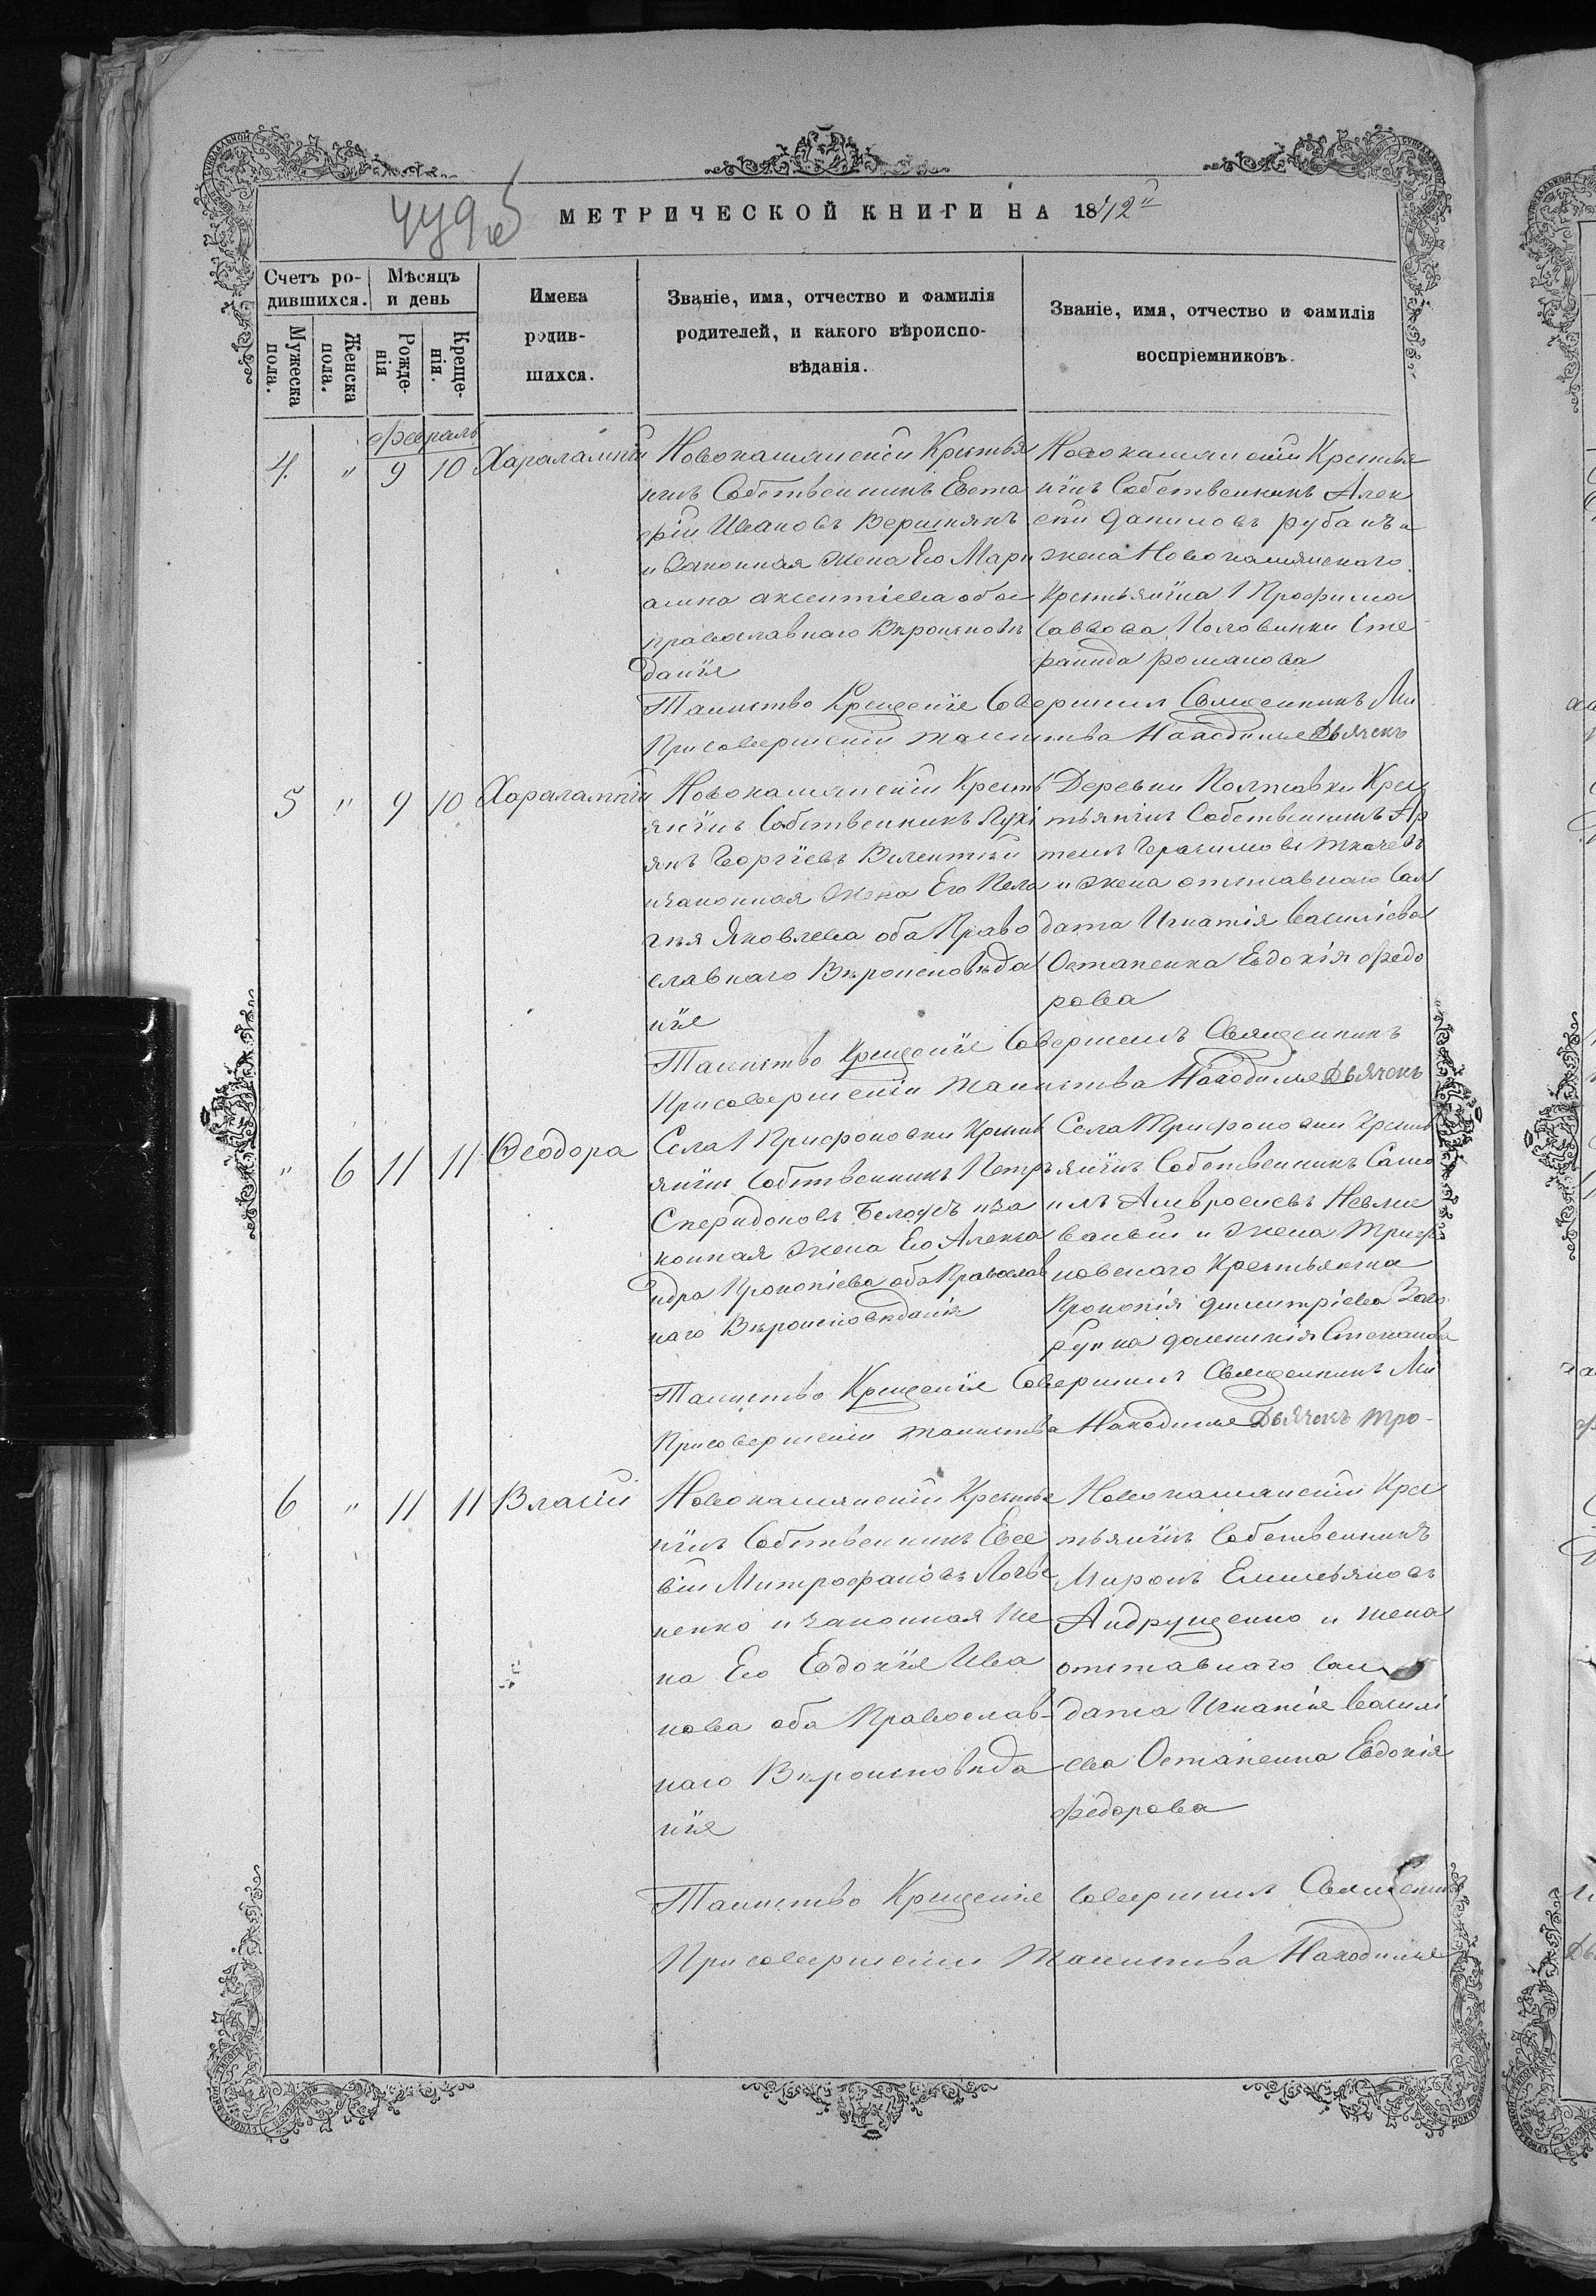 МЕТРИЧЕСКОЙ КНИГИ НА 1872й
Счетъ ро-
дившихся.
Мѣсяцъ
и день
Имена
родив-
шихся.
Званіе, имя, отчество и фамилія
родителей, и какого вѣроиспо-
вѣданія.
Званіе, имя, отчество и фамилія
воспріемниковъ.
Мужеска
пола.
Женска
пола.
Рожде-
нія
Креще-
нія.
Февраль
4. " 9 10 Харалампій
Новокамянскій Крестья
нинъ Собственникъ Евста
фій Ивановъ Вершнякъ
и Законная жена Его Мари
амна Аксентіева обое
православнаго Вѣроисповѣ
данія
Новокамянскій Крестья
нинъ Собственникъ Алек
сѣй Даниловъ Рубанъ и
жена Новокамянскаго
Крестьянина Трофима
Саввова Половинки Сте
фанида Романова
Таинство Крещенія Совершил Священникъ Ми
При совершеніи таинства Находился Дьячекъ
5 " 9 10 Харалампій
Новокамянскій Кресть
янинъ Собственникъ Лукі
янъ Георгіевъ
и законная жена Его Пела
гѣя Яковлева оба Право
славнаго Вѣроисповѣда
нія
Деревни Полтавки Крес
тьянинъ Собственникъ Ар
темъ Герасимовъ Ткачевъ
и жена отставнаго Сал
дата Игнатія Василіева
Остапенка Евдокія Федо
рова
Таинство Крещенія Совершилъ Священникъ
При совершеніи таинства Находился Дьячекъ
" 6 11 11 Феодора
Села Трифоновки Кресть
янинъ Собственникъ Петръ
Спеpидоновъ Белоусъ и за
конная жена Его Алекса
ндра Прокопіева оба Православ
наго Вѣроисповѣданія
Села Трифоновки Кресть
янинъ Собственникъ Само
илъ Амвросіевъ Невме
и жена Триф
новскаго Крестьянина
Прокопія Димитріева
Степанова
Таинство Крещенія Совершил Священникъ Ми
При совершеніи таинства Находился Дьячекъ Тро-
6 " 11 11 Власій
Новокамянскій Крестья
нинъ Собственникъ Евсе
вій Митрофановъ
ненко и законная же
на Его Евдокія Ива
нова оба Православ-
наго Вѣроисповѣда
нія
Новокамянскій Крес
тьянинъ Собственникъ
Миронъ Емельяновъ
Андрущенко и жена
отставнаго Сал
дата Игнатія Василі
ева Остапенка Евдокія
Федорова
Таинство Крещенія совершил Священник
При совершеніи Таинства Находился